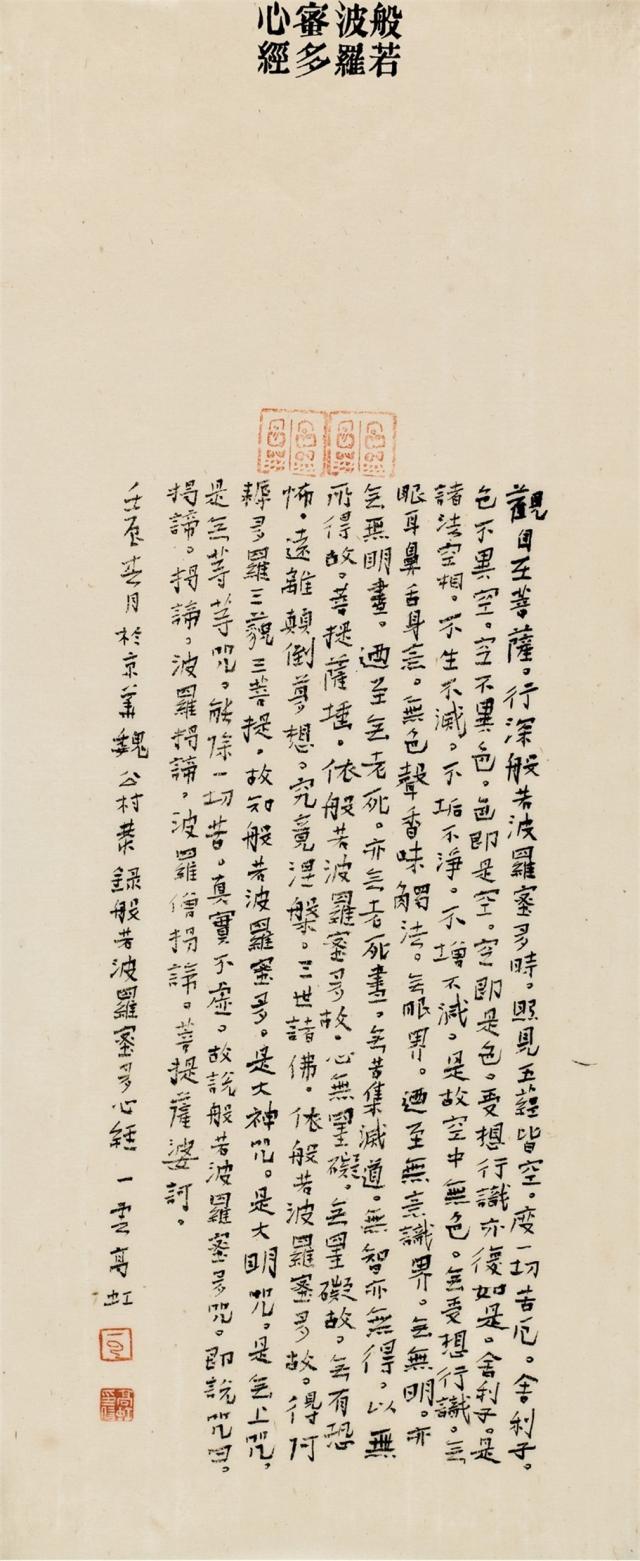 般若
波羅
蜜多
心經
觀自在菩薩。行深般若波羅蜜多時。照見五蘊皆空。度一切苦厄。舍利子。
色不異空。空不異色。色即是空。空即是色。受想行識亦復如是。舍利子。是
諸法空相。不生不滅。不垢不淨。不增不減。是故空中無色。無受想行識。无
眼耳鼻舌身意。無色聲香味觸法。无眼界。迺至無意識界。无無明。亦
无無明盡。迺至无老死。亦无老死盡。无苦集滅道。無智亦無得。以無
所得故。菩提薩埵。依般若波羅蜜多故。心無罣礙。无罣礙故。无有恐
怖。遠離顛倒夢想。究竟涅槃。三世諸佛。依般若波羅蜜多故。得阿
耨多羅三藐三菩提。故知般若波羅蜜多。是大神咒。是大明咒。是无上咒。
是无等等咒。能除一切苦。真實不虛。故說般若波羅蜜多咒。即說咒曰。
揭諦。揭諦。波羅揭諦。波羅僧揭諦。菩提薩婆訶。
壬辰春月於京華魏公村恭錄般若波羅蜜多心經 一雲高虹